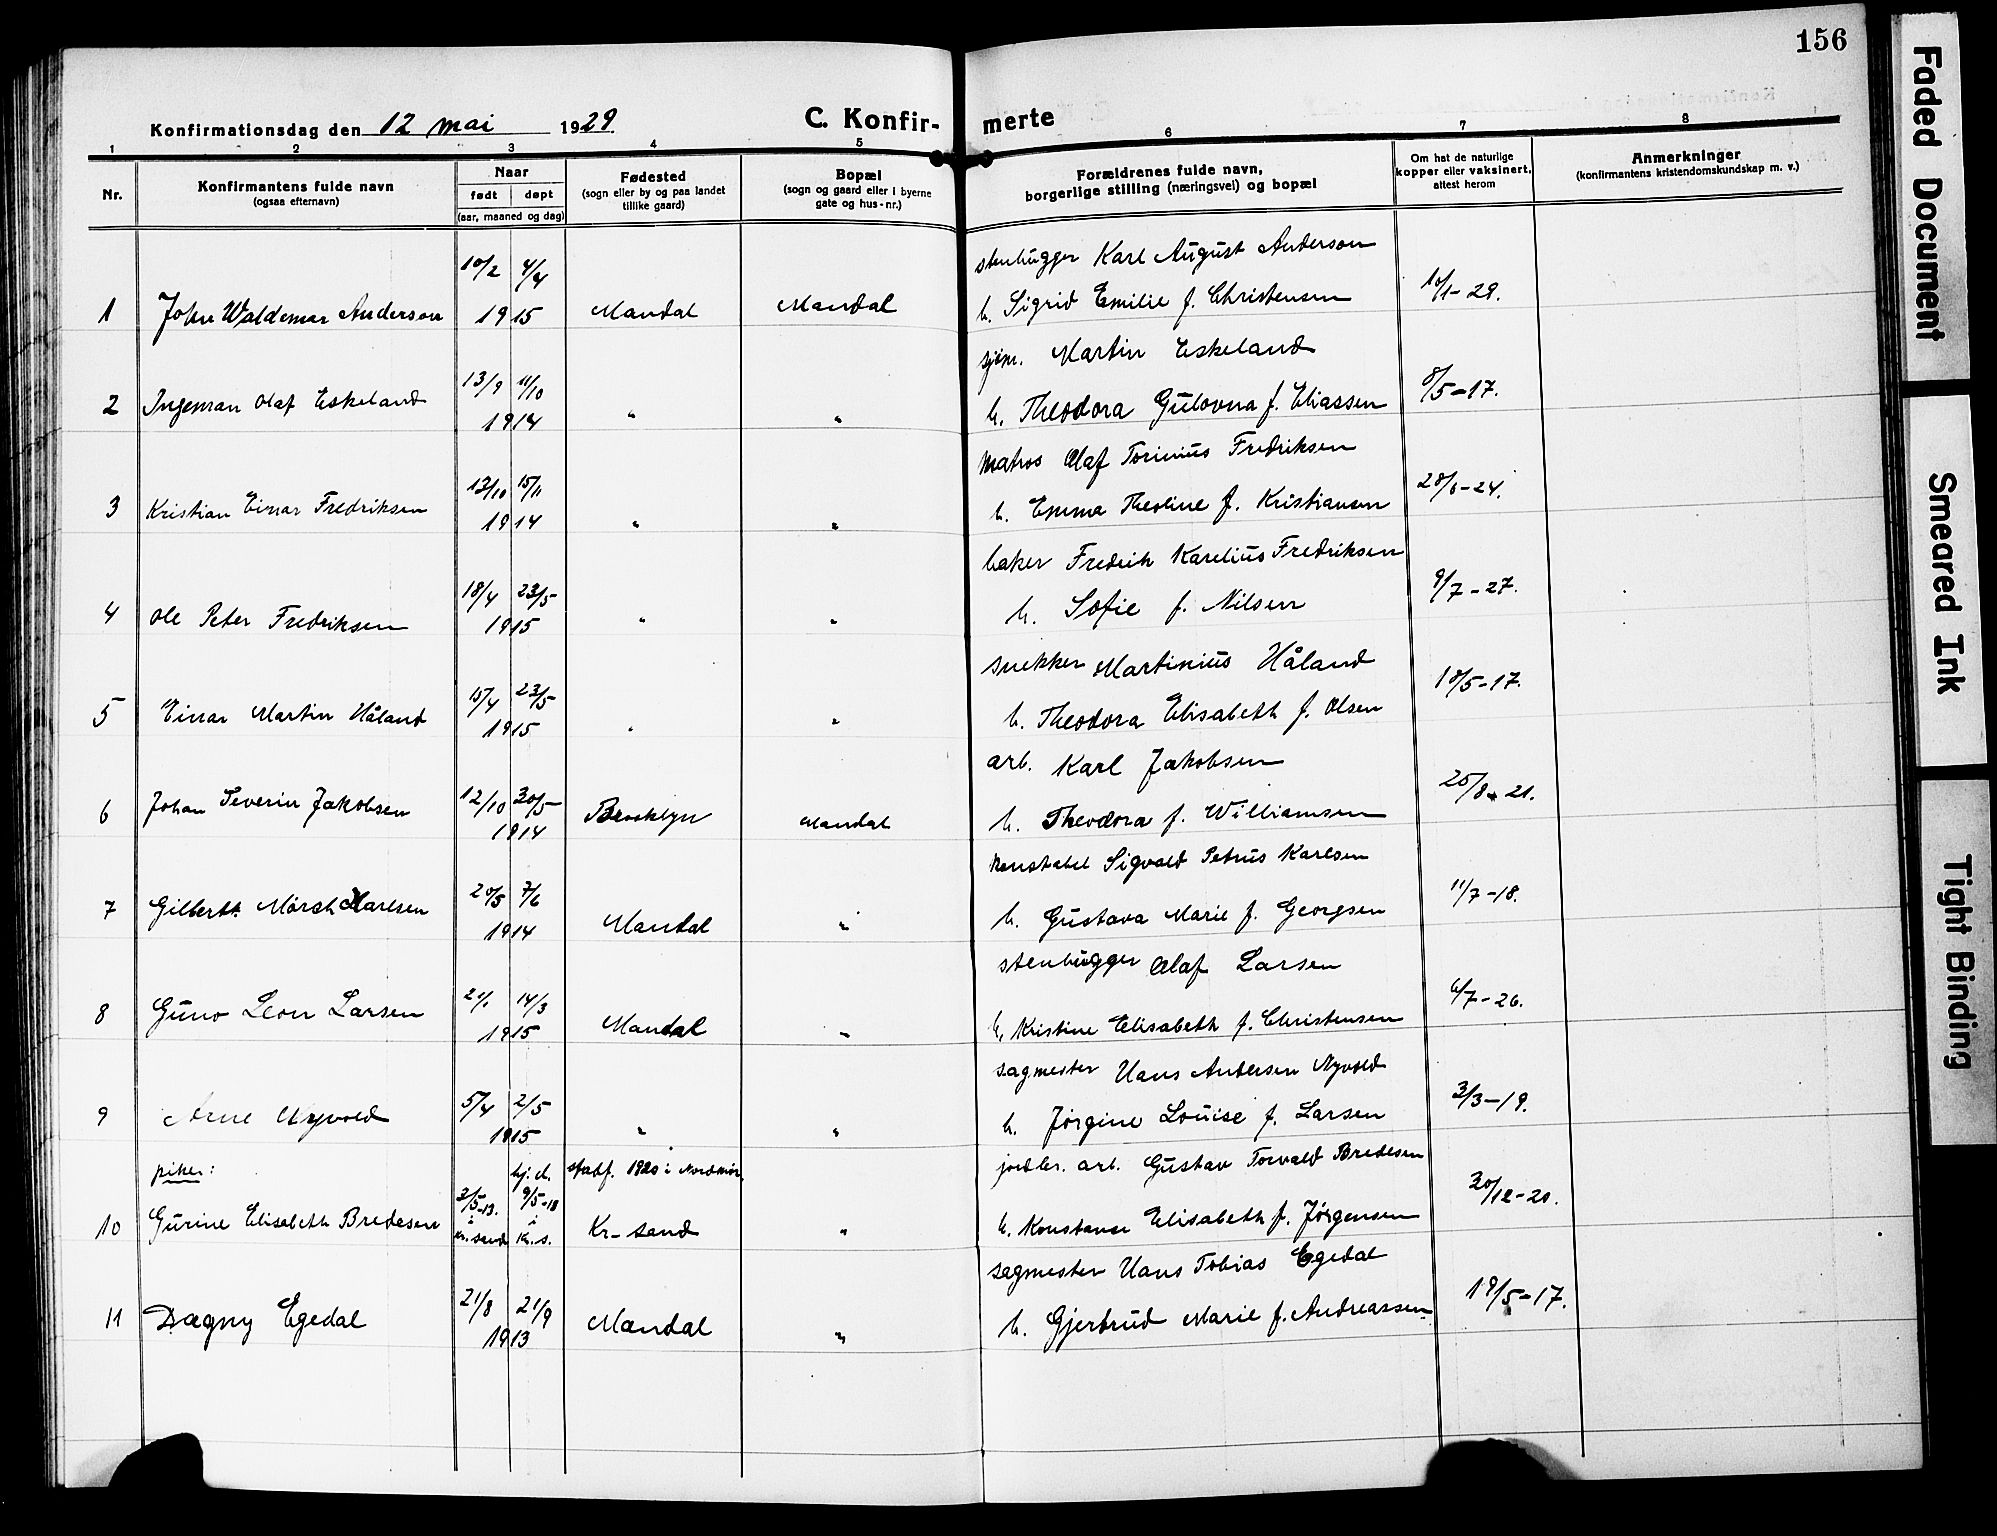 156
Konfirmationsdag den 12 mai 1929.
C. Konfir-merte
1 2 3 4 5 6 7 8
Nr.
Konfirmantens fulde navn
(ogsaa efternavn)
Naar
født døpt
(aar, maaned og dag)
Fødested
(sogn eller by og paa landet
tillike gaard)
Bopæl
(sogn og gaard eller i byerne
gate og hus-nr.)
Forældrenes fulde navn,
borgerlige stilling (næringsvei) og bopæl
Om hat de naturlige
kopper eller vaksinert,
attest herom
Anmerkninger
(konfirmantens kristendomskundskap m. v.)
10/2 4/4 stenhugger Karl August Anderson
1 John Waldemar Anderson 1915 Mandal Mandal h. Sigrid Emilie f. Christensen 10/1-29.
13/9 11/10 sjøm. Martin Eskeland
2 Ingeman Olaf Eskeland 1914 " " h. Theodora Gulovna f. Eliassen 8/5-17.
15/11 matros Olaf Torinius Fredriksen
3 Kristian Einar Fredriksen 1914 " " h. Emma Theoline f. Kristiansen 28/6-24.
18/4 23/5 baker Fredrik Karelius Fredriksen
4 Ole Peter Fredriksen 1915 " " h. Sofie f. Nilsen 9/7-27.
15/4 23/5 snekker Martinius Håland
5 Einar Martin Håland 1915 " " h. Theodora Elisabeth f. Olsen 18/5-17.
12/10 30/5 arb. Karl Jakobsen
6 Johan Severin Jakobsen 1914 Brooklyn Mandal h. Theodora f. Williamsen 25/8-21.
20/5 7/6 konstabel Sigvald Petrus Karlsen
7 Gilbert Mørch Karlsen 1914 Mandal " h. Gustava Marie f. Georgsen 11/7-18.
21/1 14/3 stenhugger Olaf Larsen
8 Guno Leon Larsen 1915 Mandal " h. Kristine Elisabeth f. Christensen 6/7-26.
5/4 2/5 sagmester Hans Andersen Nyvold
9 Arne Nyvold 1915 " " h. Jørgine Louise f. Larsen 3/3-19.
piker: hj. d. stadf. 1920 i jordbr. arb. Gustav Torvald Bredesen
2/5-13. 9/5-18
10 Gurine Elisabeth Bredesen i Kr.sand i Kr.s. Kr-sand " h. Konstanse Elisabeth f. Jørgensen 30/12-20.
21/8 21/9 sagmester Hans Tobias Egedal
11 Dagny Egedal 1913 Mandal " h. Gjertrud Marie f. Andreassen 19/5-17.
Faded Document
Smeared Ink
Tight Binding